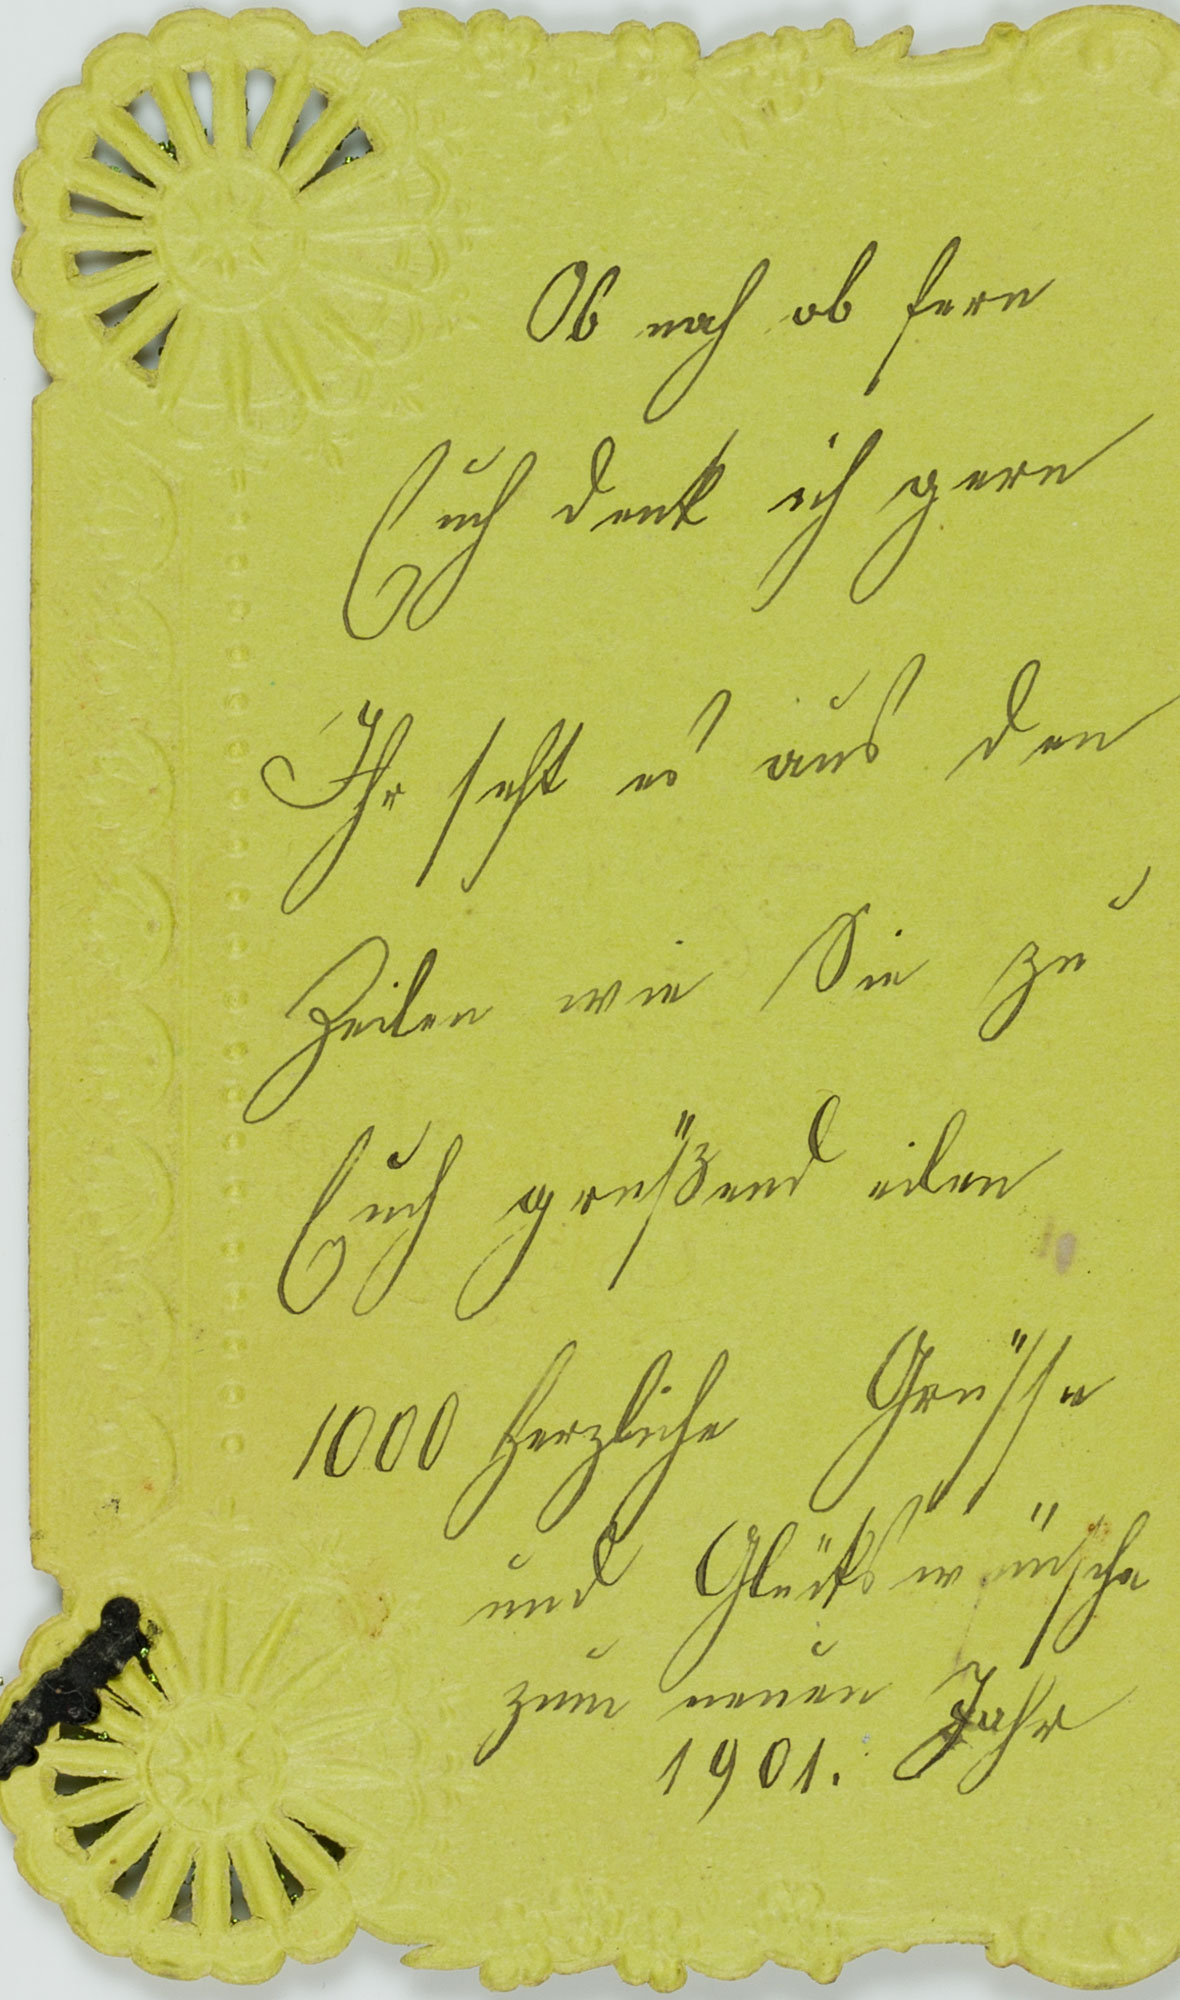 Ob nah ob fern
Euch denk ich gern
Ihr seht es aus den
Zeilen wie Sie zu
Euch grüßend eilen
1000 herzliche Grüsse
und Glückswünsche
zum neuen Jahr
1901.